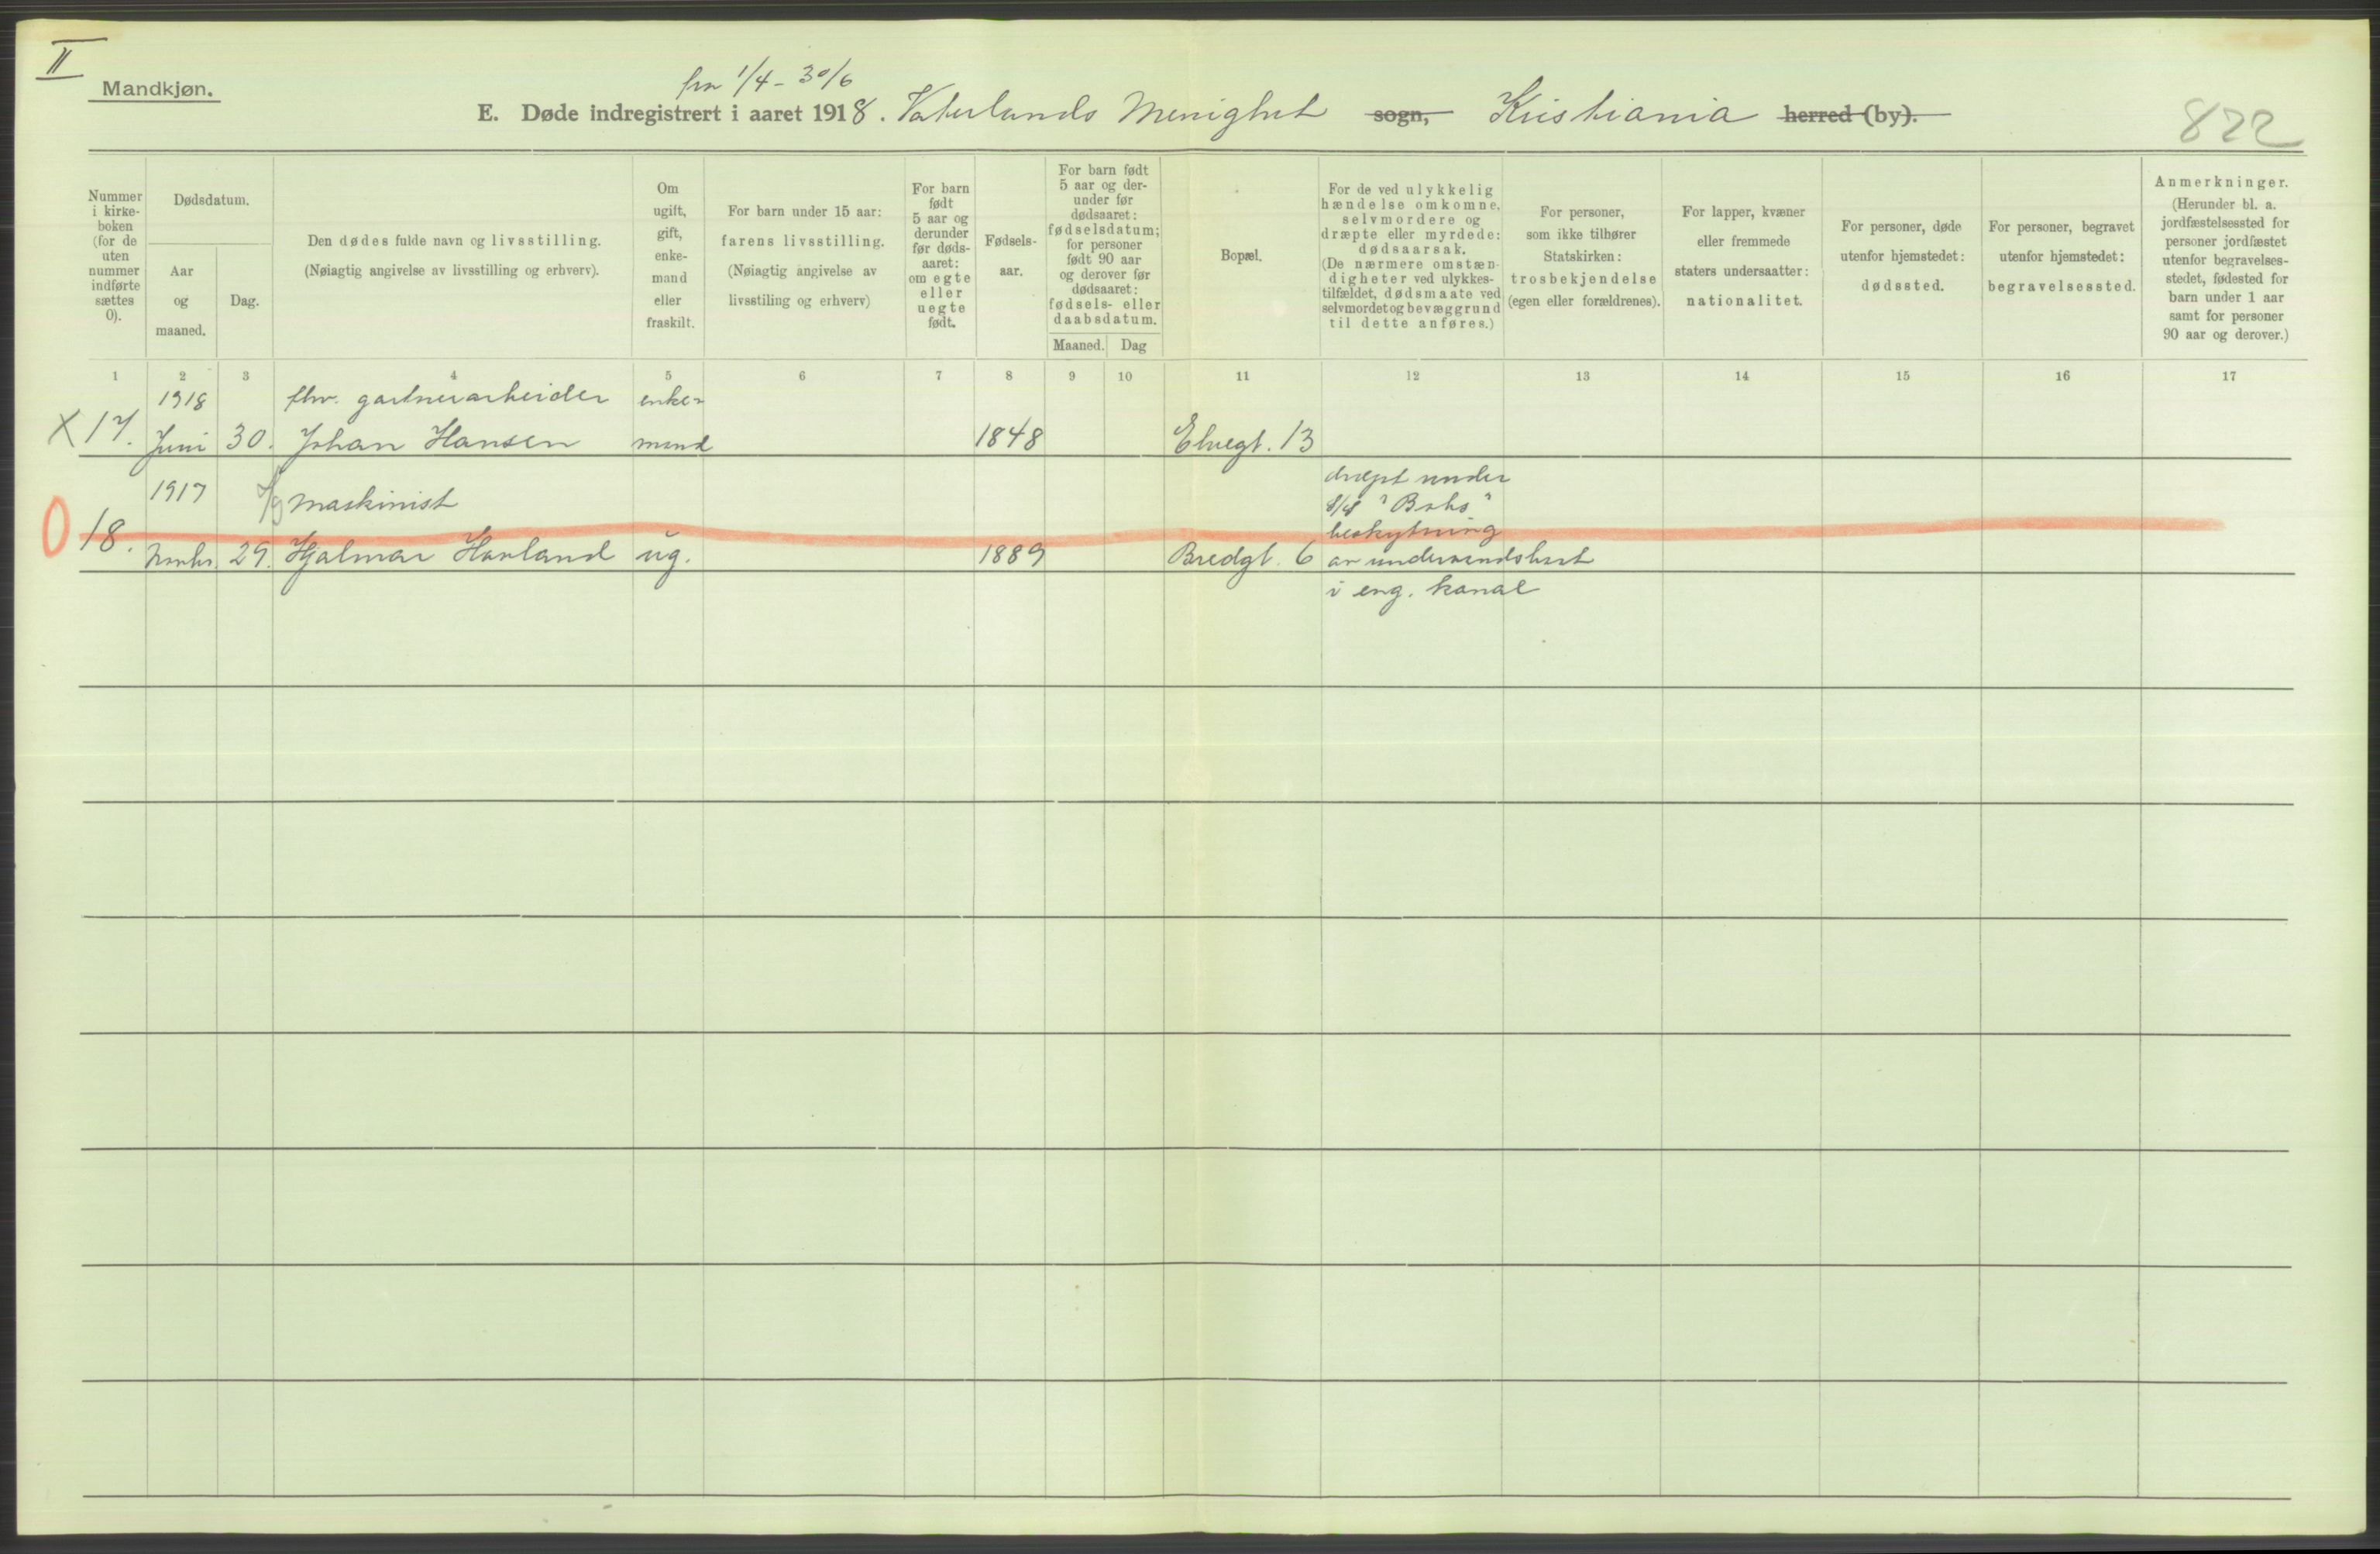 II
Mandkjøn.
fra 1/4 - 30/6
E. Døde indregistrert i aaret 1918. Vaterlands Menighet sogn, Kristiania herred (by).
822
Nummer i kirke-boken (for de uten nummer indførte sættes 0).
Dødsdatum.
Aar og maaned.
Dag.
Den dødes fulde navn og livsstilling.
(Nøiagtig angivelse av livsstilling og erhverv).
Om ugift, gift, enke-mand eller fraskilt.
For barn under 15 aar:
farens livsstilling.
(Nøiagtig angivelse av
livsstiling og erhverv)
For barn født 5 aar og derunder før døds-aaret: om egte eller uegte født.
Fødsels-aar.
For barn født 5 aar og der-under før dødsaaret: fødselsdatum; for personer født 90 aar og derover før dødsaaret: fødsels- eller daabsdatum.
Maaned. Dag
Bopæl.
For de ved ulykkelig hændelse omkomne, selvmordere og dræpte eller myrdede: dødsaarsak.
(De nærmere omstæn-digheter ved ulykkes-tilfældet, dødsmaate ved selvmordet og bevæggrund til dette anføres.)
For personer, som ikke tilhører Statskirken: trosbekjendelse (egen eller forældrenes).
For lapper, kvæner eller fremmede staters undersaatter: nationalitet.
For personer, døde utenfor hjemstedet: dødssted.
For personer, begravet utenfor hjemstedet: begravelsessted.
Anmerkninger.
(Herunder bl. a. jordfæstelsessted for personer jordfæstet utenfor begravelses-stedet, fødested for barn under 1 aar samt for personer 90 aar og derover.)
1 2 3 4 5 6 7 8 9 10 11 12 13 14 15 16 17
1918 fhv. gartnerarbeider enke-
X 17. Juni 30. Johan Hansen mand 1848 Elvegt. 13
1917 maskinist dræpt under
S/S "Bohs"
0 18. Novbr. 29. Hjalmar Havland ug. 1889 Bredgt. 6
beskytning
av undervandsbaat
i eng. kanal